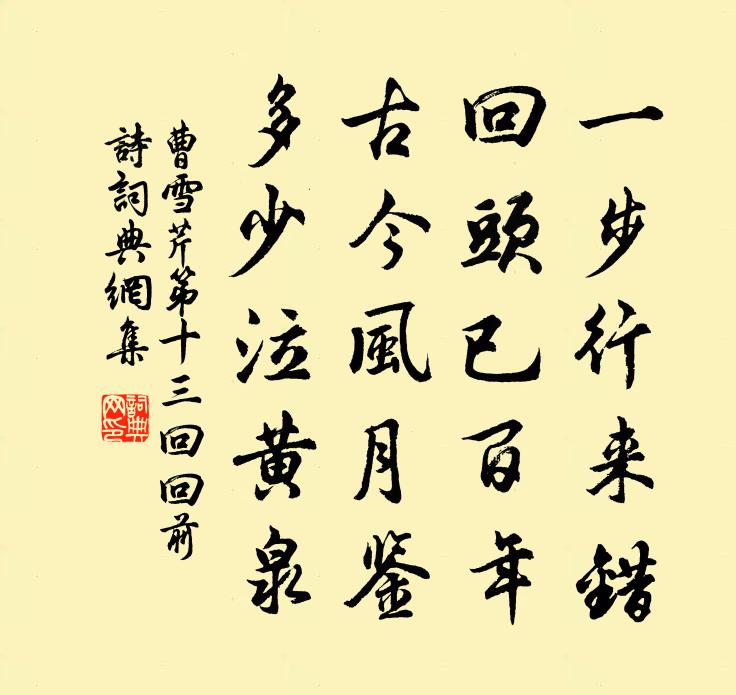 一步行来錯
回頭已百年
古今風月鉴
多少泣黄泉
曹雪芹第十三回回前
詩詞典網集
詞典
网印